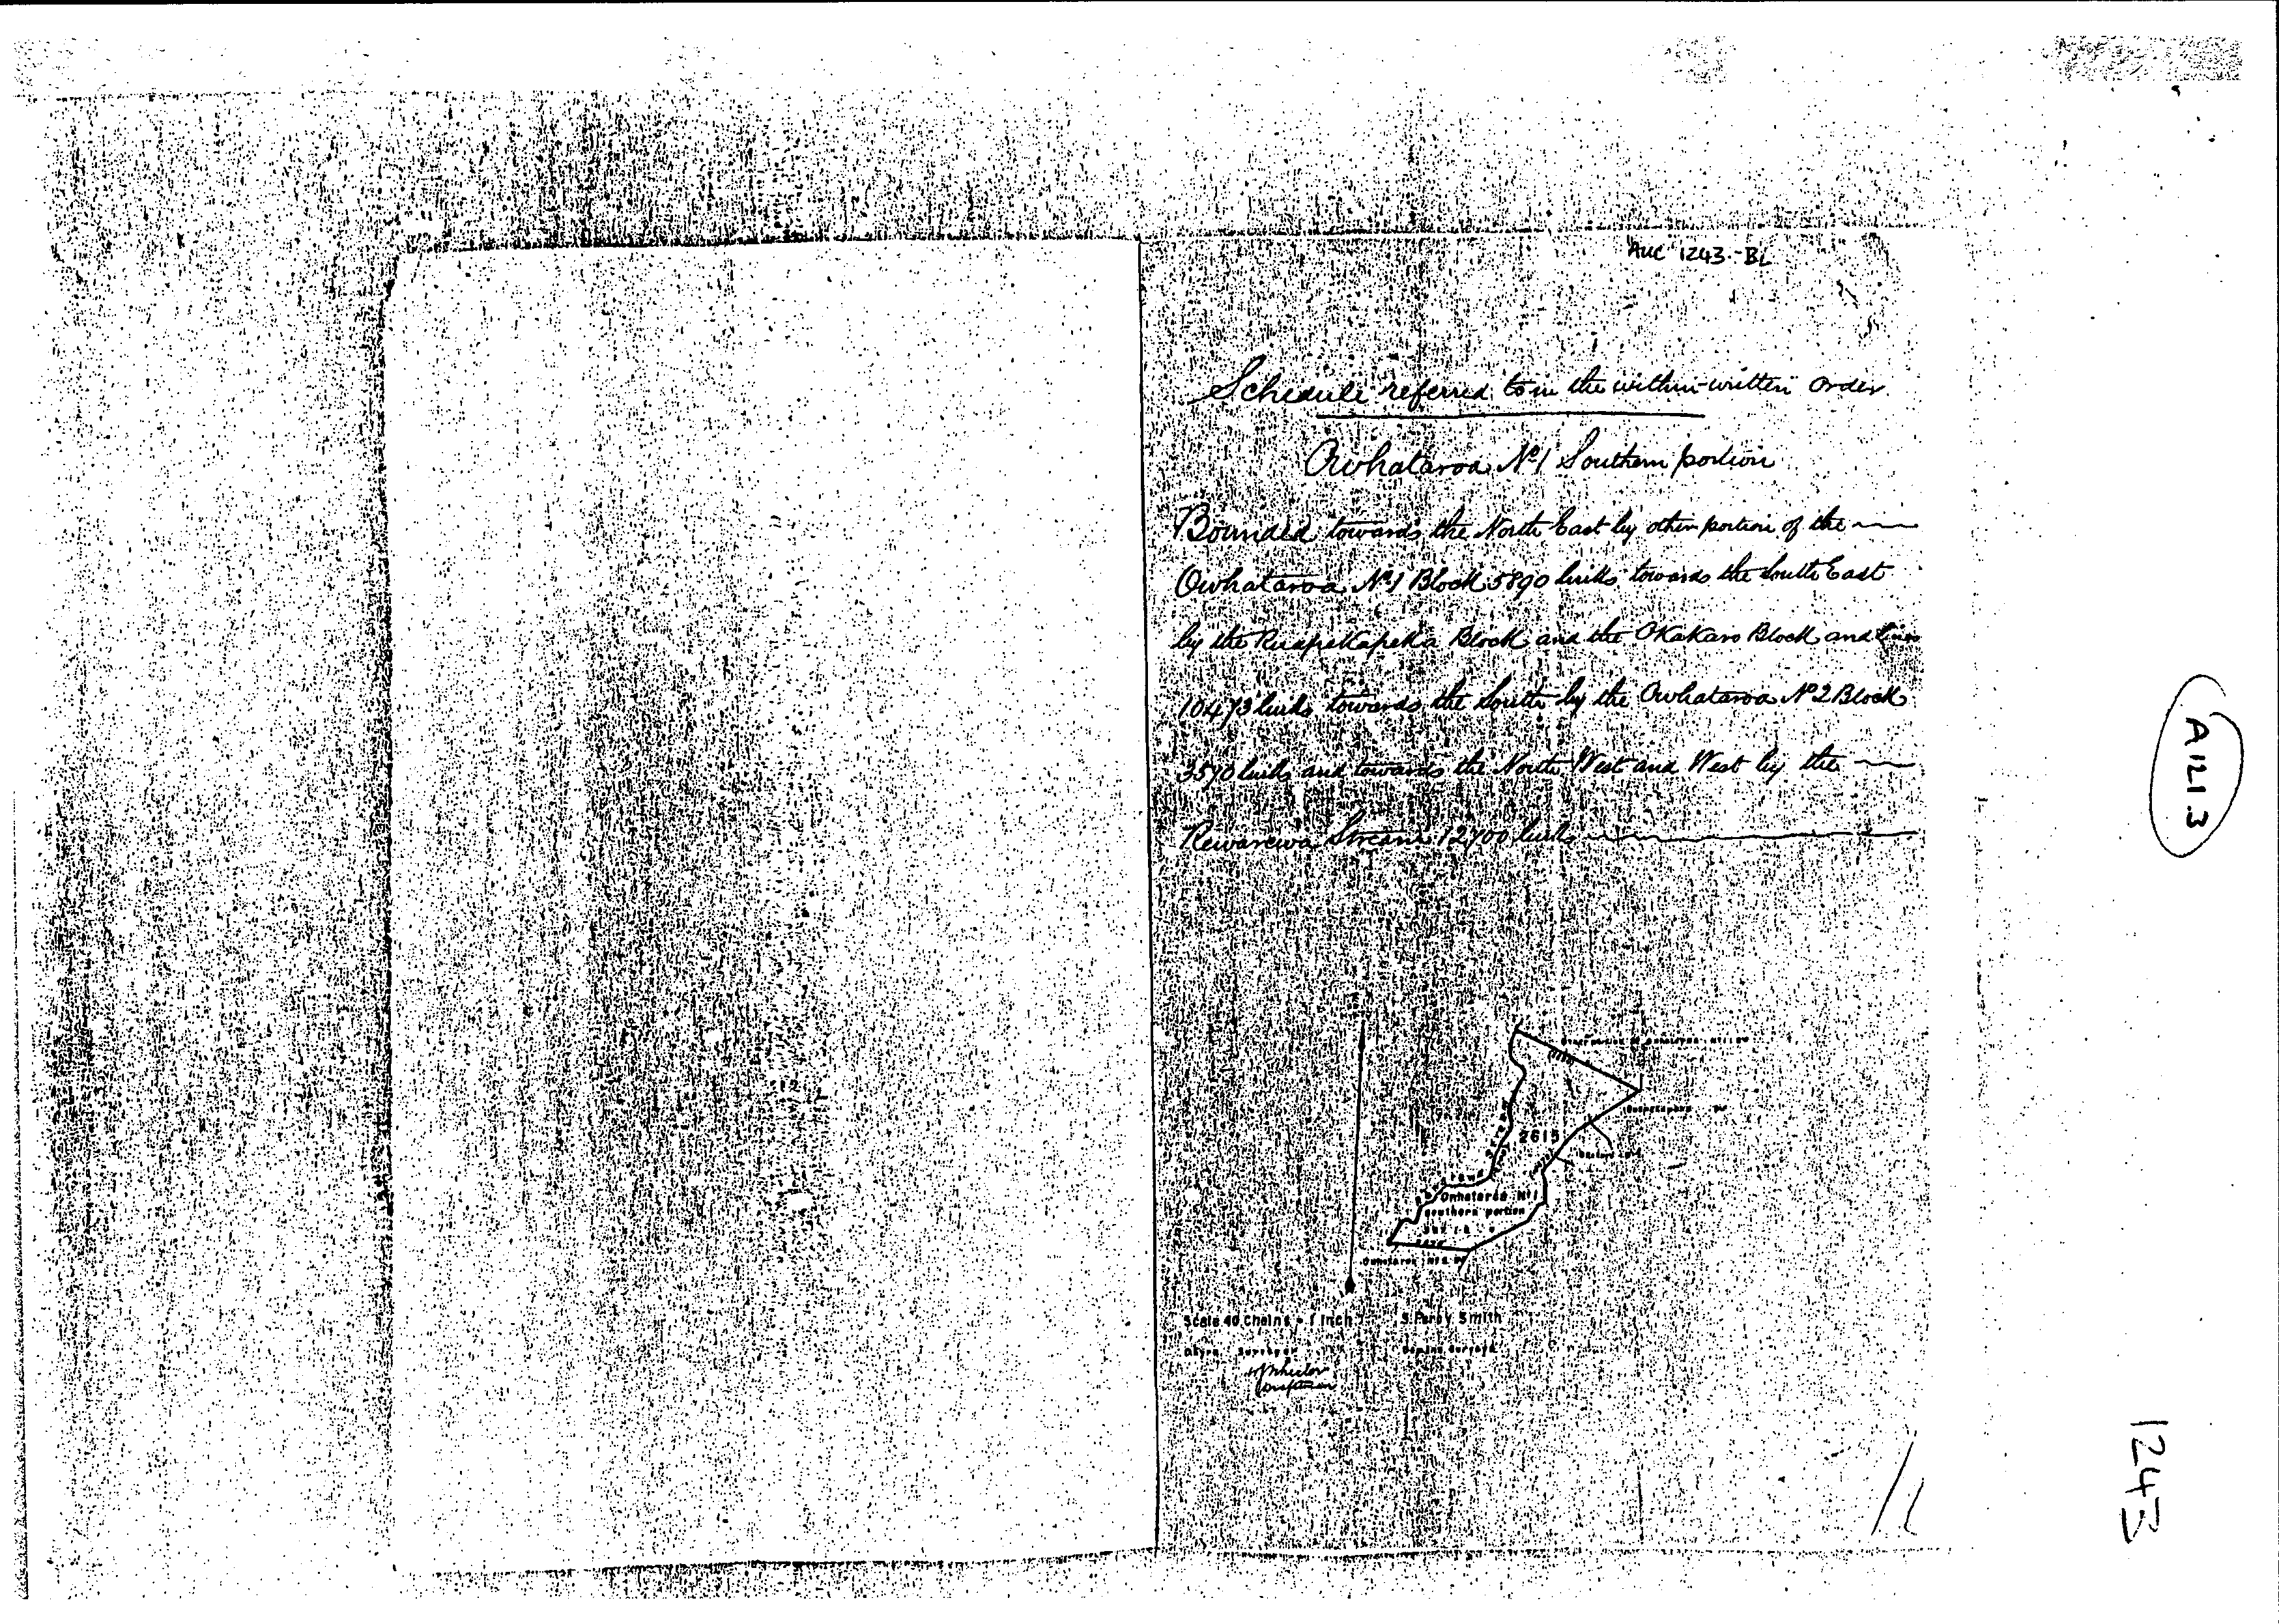 AUC 1243-BL
Schedule referred to in the within-written Order
Owhataroa No. 1 Southern portion
Bounded towards the North East by other portion of the
Owhataroa No. 1 Block 5890 links towards the South East
by the Ruapekapeka Block and the Okakaro Block and lines
10473 links towards the South by the Owhataroa No. 2 Block
3570 links and towards the North West and West by the
Rewarewa Stream 12700 links
2615
Owhataroa No. 1
southern portion
Scale 40 Chains = 1 Inch
S Percy Smith
Surveyor
Draftsman
A1213
1243